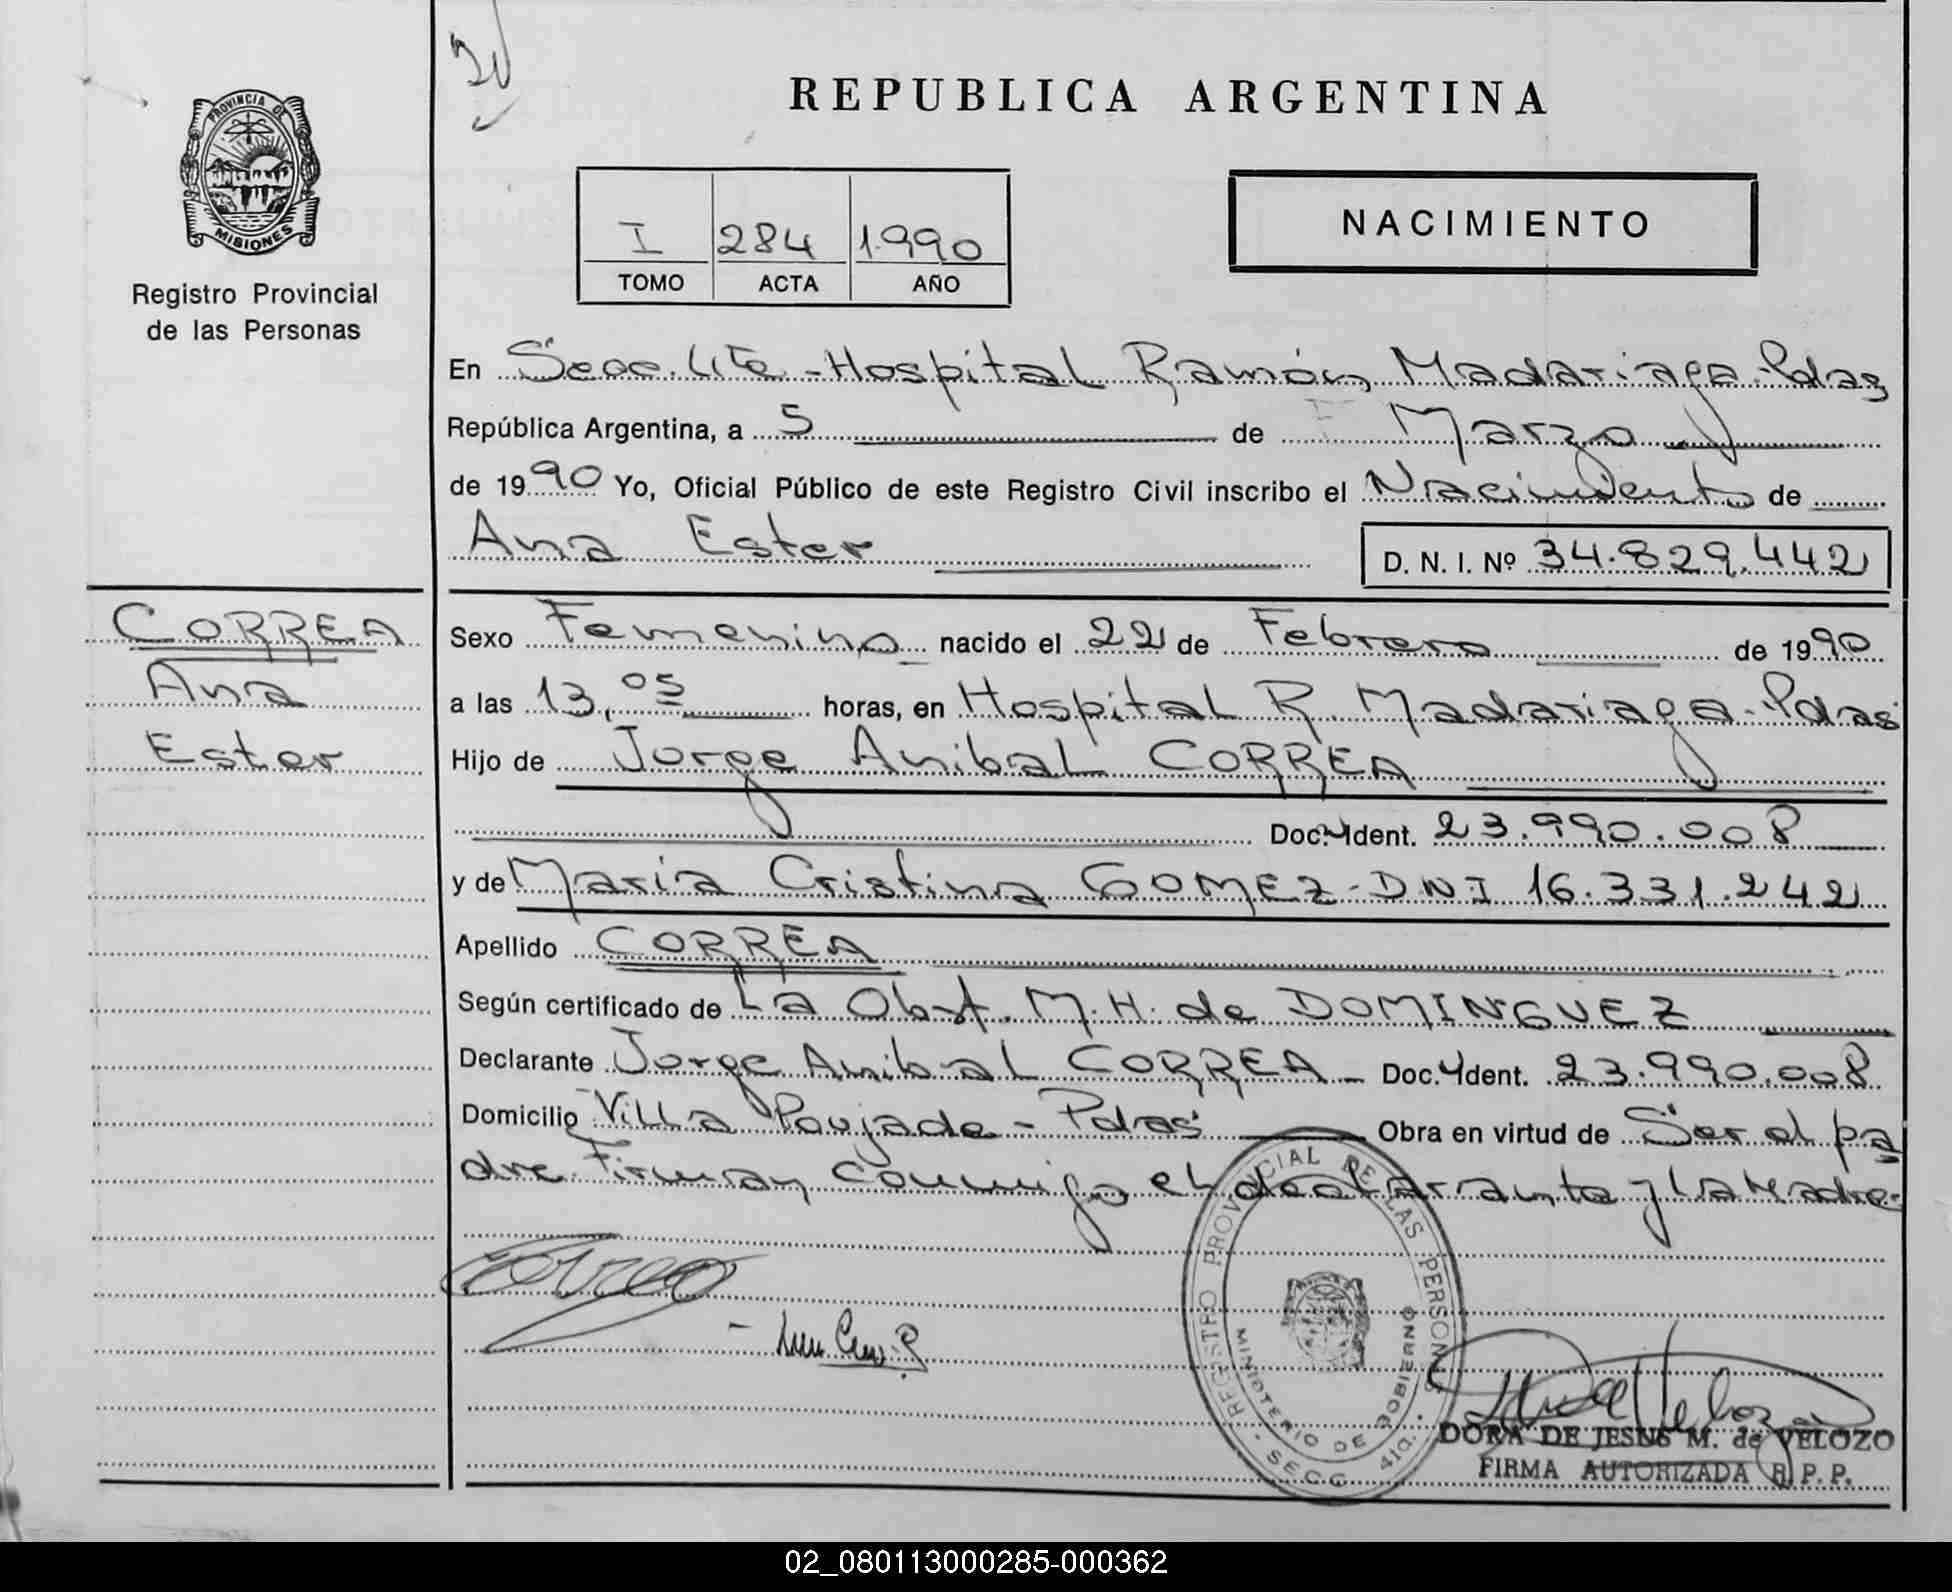 REPUBLICA ARGENTINA
PROVINCIA DE
MISIONES
Registro Provincial
de las Personas
I 284 1990
TOMO ACTA AÑO
NACIMIENTO
En Secc. 4ta - Hospital Ramón Madariaga - Pdas
República Argentina, a 5 de Marzo
de 1990 Yo, Oficial Público de este Registro Civil inscribo el Nacimiento de
Ana Ester
D. N. I. Nº 34.829.442
CORREA
Ana
Ester
Sexo Femenino nacido el 22 de Febrero de 1990
a las 13,05 horas, en Hospital R. Madariaga - Pdas
Hijo de Jorge Anibal CORREA
Doc. Ident. 23.990.008
y de María Cristina GOMEZ - DNI 16.331.242
Apellido CORREA
Según certificado de La Obst. M. H. de DOMINGUEZ
Declarante Jorge Anibal CORREA - Doc. Ident. 23.990.008
Domicilio Villa Poujade - Pdas Obra en virtud de Ser el pa
dre. Firman conmigo el declarante y la Madre.-
REGISTRO PROVINCIAL DE LAS PERSONAS
MINISTERIO DE GOBIERNO
SECC. 4ta.
DORA DE JESUS M. de VELOZO
FIRMA AUTORIZADA R.P.P.
02_080113000285-000362